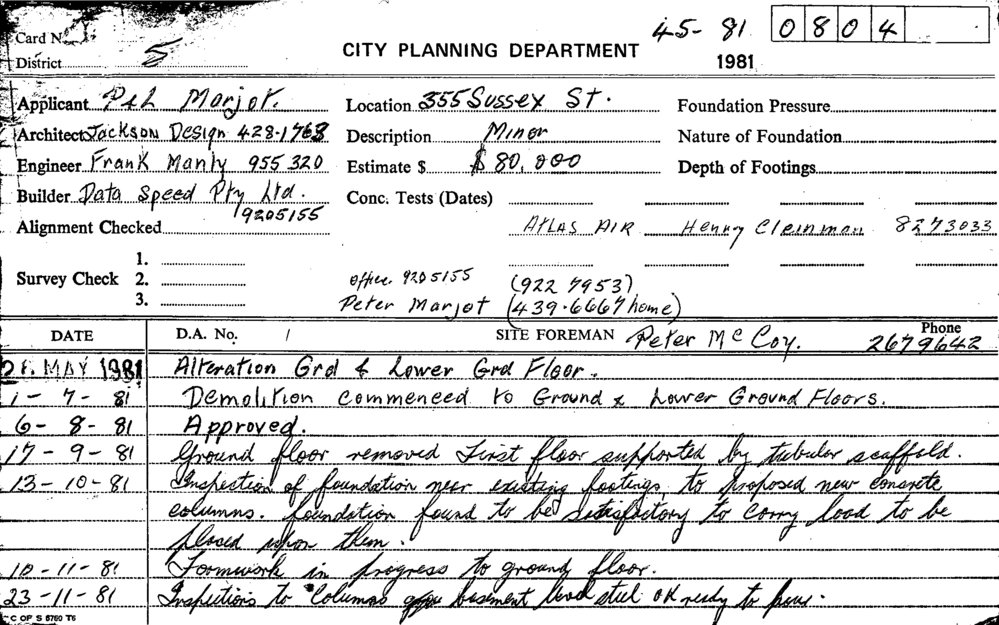 45- 81 0804
Card N
District 5
CITY PLANNING DEPARTMENT
1981
Applicant P&L Marjot.
Location 355 Sussex St.
Foundation Pressure
Architect Jackson Design 428-1763
Description Minor
Nature of Foundation
Engineer Frank Manly 955 320
Estimate $ $80,000
Depth of Footings
Builder Data Speed Pty Ltd.
Conc. Tests (Dates)
9205155
Alignment Checked
Atlas Air Henny Cleinman 8273033
Survey Check 1.
2.
3.
office. 9205155 (922 7953)
Peter Marjot (439-6667 home)
DATE D.A. No. / SITE FOREMAN Peter McCoy. Phone 2679642
MAY 1981 Alteration Grd & Lower Grd Floor.
1-7-81 Demolition commenced to Ground & Lower Ground Floors.
6-8-81 Approved.
17-9-81 Ground floor removed First floor supported by tubular scaffold.
13-10-81 Inspection of foundation near existing footings, to proposed new concrete
columns. foundation found to be satisfactory to carry load to be
placed upon them.
10-11-81 Formwork in progress to ground floor.
23-11-81 Inspections to Columns basement level steel OK ready to pour.
C OF S 5760 T6